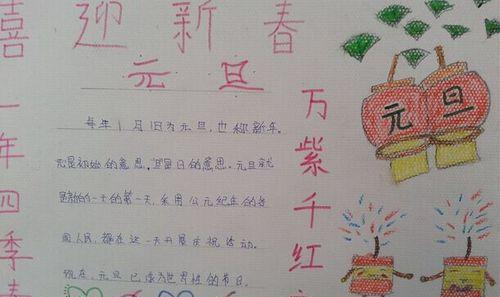 喜迎新春
元旦
每年1月1日为元旦,也称新年。
元是初始的意思,旦是日的意思。元旦就
是新的一年的第一天,采用公元纪年的各
国人民,都在这一天开展庆祝活动。
现在,元旦已成为世界性的节日。
一年四季春
万紫千红
元旦